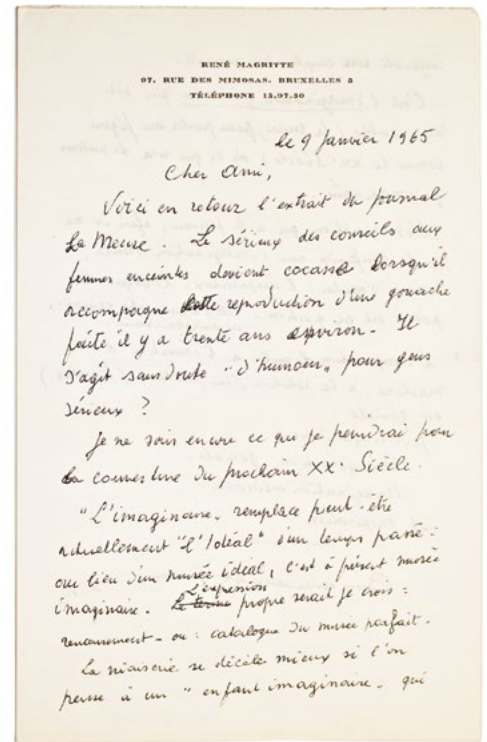 RENÉ MAGRITTE
97, RUE DES MIMOSAS, BRUXELLES 3
TÉLÉPHONE 15.07.30
le 9 Janvier 1965
Cher Ami,
Voici en retour l'extrait du journal
La Meuse. Le sérieux des conseils aux
femmes enceintes devient cocasse lorsqu'il
accompagne cette reproduction d'une gouache
faite il y a trente ans environ. Il
s'agit sans doute "d'humour" pour gens
sérieux ?
Je ne sais encore ce que je peindrai pour
la couverture du prochain XX. Siècle.
"L'imaginaire" remplace peut-être
actuellement "l'Idéal" d'un temps passé :
au lieu d'un musée idéal, c'est à présent musée
L'expression
imaginaire. Le terme propre serait je crois :
- ou : catalogue du musée parfait.
La niaiserie se décèle mieux si l'on
pense à un "enfant imaginaire" qui